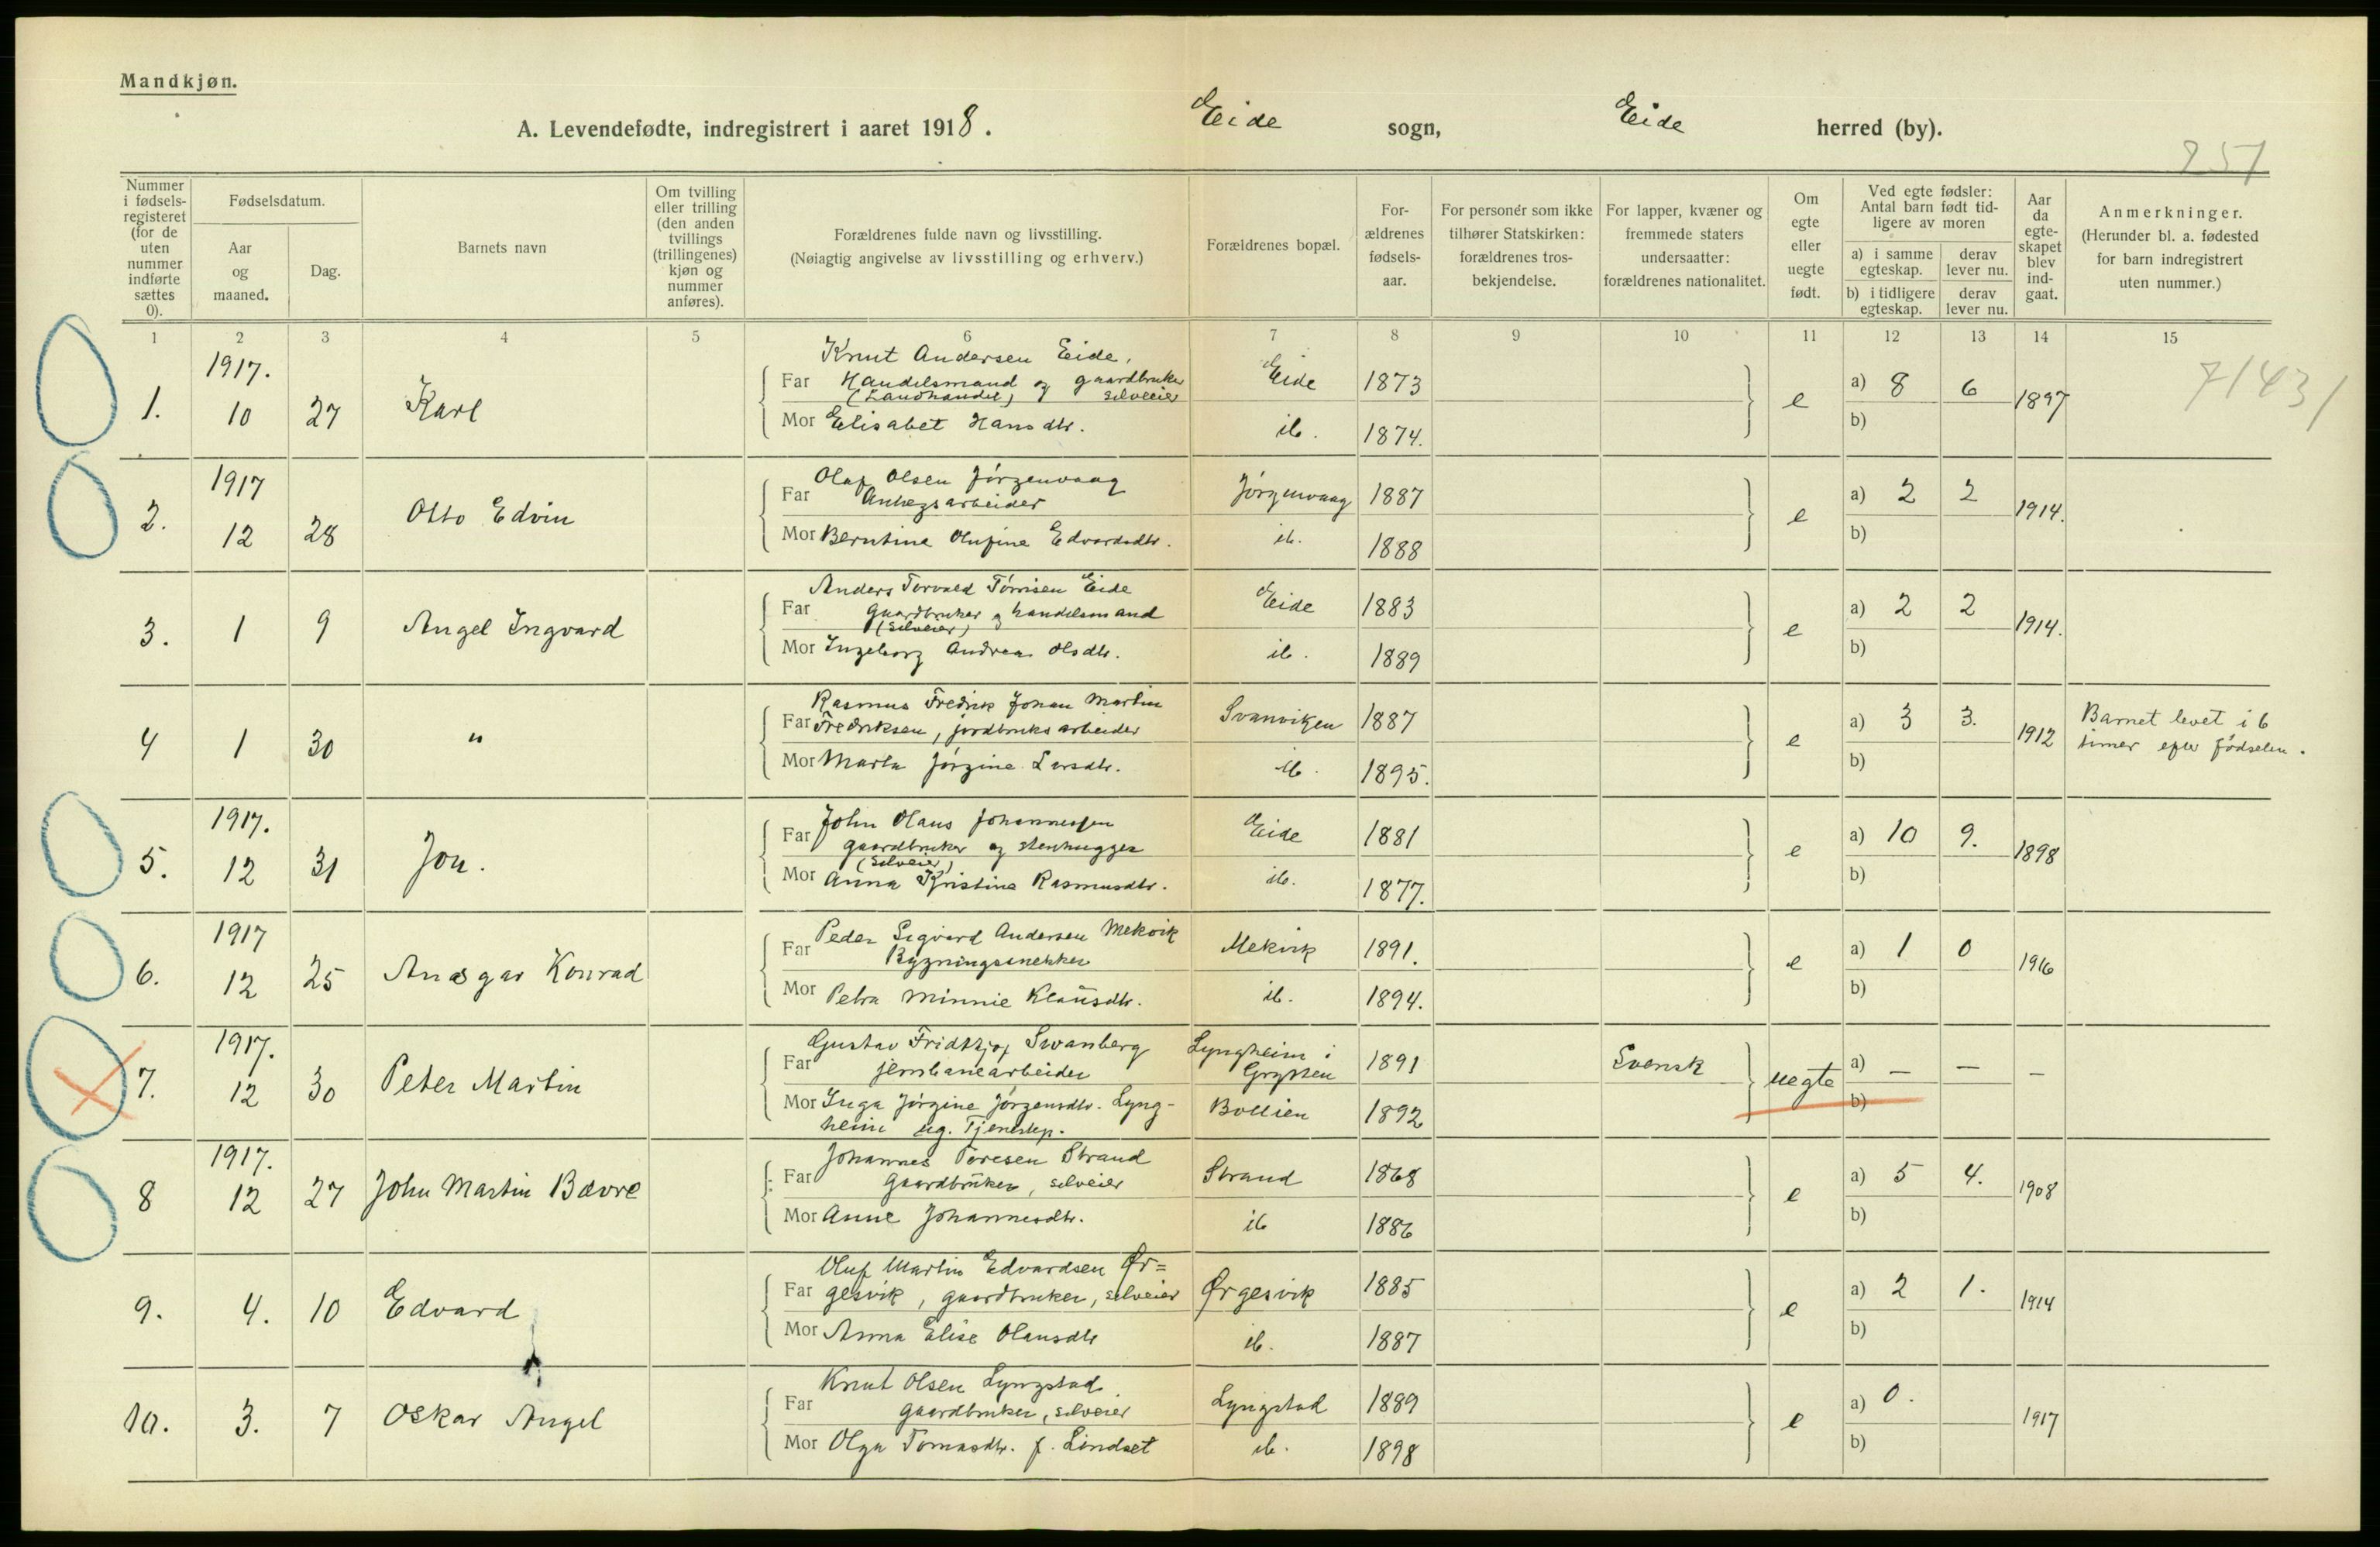 Mandkjøn.
A. Levendefødte, indregistrert i aaret 1918. Eide sogn, Eide herred (by).
257
Nummer i fødselsregisteret (for de uten nummer indførte sættes 0).
Fødselsdatum.
Aar og maaned.
Dag.
Barnets navn
Om tvilling eller trilling (den anden tvillings (trillingenes) kjøn og nummer anføres).
Forældrenes fulde navn og livsstilling.
(Nøiagtig angivelse av livsstilling og erhverv.)
Forældrenes bopæl.
Forældrenes fødselsaar.
For personer som ikke tilhører Statskirken: forældrenes trosbekjendelse.
For lapper, kvæner og fremmede staters undersaatter: forældrenes nationalitet.
Om egte eller uegte født.
Ved egte fødsler: Antal barn født tidligere av moren
a) i samme egteskap. derav lever nu.
b) i tidligere egteskap. derav lever nu.
Aar da egteskapet blev indgaat.
Anmerkninger.
(Herunder bl. a. fødested for barn indregistrert uten nummer.)
1 2 3 4 5 6 7 8 9 10 11 12 13 14 15
71431
1917.
Knut Andersen Eide,
Far Handelsmand og gaardbruker Eide 1873 a) 8 6
(Landhandel) og selveier
1. 10 27 Karl e 1897
Mor Elisabet Hansdtr. ib. 1874. b)
1917
Olaf Olsen Jörgenvaag
Far Anlegsarbeider Jörgenvaag 1887 a) 2 2
2. 12 28 Otto Edvin e 1914.
Mor Berntine Olufine Edvardsdtr. ib. 1888 b)
Anders Torvald Tönnisen Eide
Far Gaardbruker og handelsmand Eide 1883 a) 2 2
(Selveier)
3. 1 9 Angel Ingvard e 1914.
Mor Ingeborg Andrea Olsdtr. ib. 1889 b)
Rasmus Fredrik Johan Martin
Far Fredriksen, jordbruksarbeider Svanviken 1887 a) 3 3.
4 1 30 " e 1912 Barnet levet i 6
timer efter födselen.
Mor Marta Jörgine Larsdtr. ib. 1895. b)
1917.
John Olaus Johannessen
Far gaardbruker og stenhugger Eide 1881 a) 10 9.
(Selveier)
5. 12 31 Jon. e 1898
Mor Anna Kristine Rasmusdtr. ib. 1877. b)
1917
Peder Sigvard Andersen Mekvik
Far Bygningssnekker Mekvik 1891. a) 1 0
6. 12 25 Ansgar Konrad e 1916
Mor Petra Minnie Klausdtr. ib. 1894. b)
1917.
Gustav Fridtjof Svanberg Lyngheim i
Far jernbanearbeider Grytten 1891 Svensk a) – – –
7. 12 30 Peter Martin uegte
Mor Inga Jörgine Jörgensdtr. Lyng- Bollien 1892 b)
heim ug. Tjenestep.
1917.
Johannes Toresen Strand
Far Gaardbruker, selveier Strand 1868 a) 5 4.
8 12 27 John Martin Bævre e 1908
Mor Anne Johannesdtr. ib 1886 b)
Oluf Martin Edvardsen Ør=
Far gesvik, gaardbruker, selveier Ørgesvik 1885 a) 2 1.
9. 4. 10 Edvard e 1914
Mor Anna Elise Olausdtr ib. 1887 b)
Knut Olsen Lyngstad
Far gaardbruker, selveier Lyngstad 1889 a) 0.
10. 3. 7 Oskar Angel e 1917
Mor Olga Tomasdtr. f. Lindset ib. 1898 b)